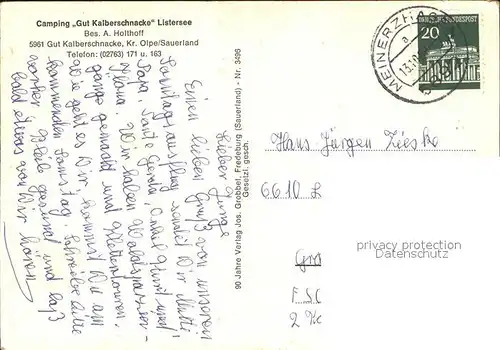 Camping „Gut Kalberschnacke" Listersee
Bes. A. Holthoff
5961 Gut Kalberschnacke, Kr. Olpe/Sauerland
Telefon: (02763) 171 u. 163
Lieber Junge
Einen lieben Gruß von unserem
Sonntagsausflug sendet Dir Mutti
Papa, Tante Gerda, Onkel Horst und
Ilona. Wir haben Waldspazier-
gänge gemacht und Klettertouren.
Wie geht es Dir kommst Du am
kommenden Samstag. Schreibe bitte
vorher. Bleib gesund und laß
bald etwas von Dir hören
90 Jahre Verlag Jos. Grobbel, Fredeburg (Sauerland) - Nr. 3496
Gesetzl. gesch.
MEINERZHAG
DEUTSCHE BUNDESPOST
20
Hans Jürgen
6610 L
privacy protection
Datenschutz